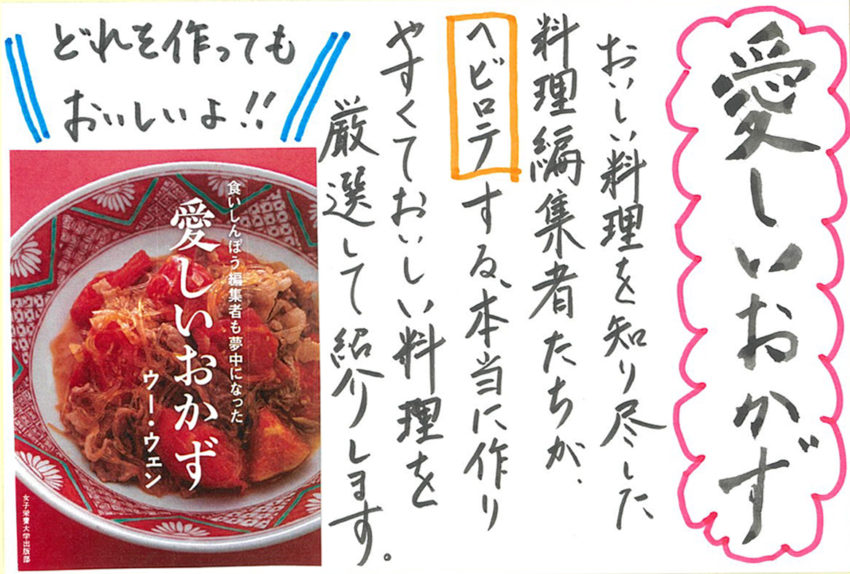 愛しいおかず
おいしい料理を知り尽した
料理編集者たちが、
ヘビロテする、本当に作り
やすくておいしい料理を
厳選して紹介します。
どれを作っても
おいしいよ!!
食いしんぼう編集者も夢中になった
愛しいおかず
ウー・ウェン
女子栄養大学出版部